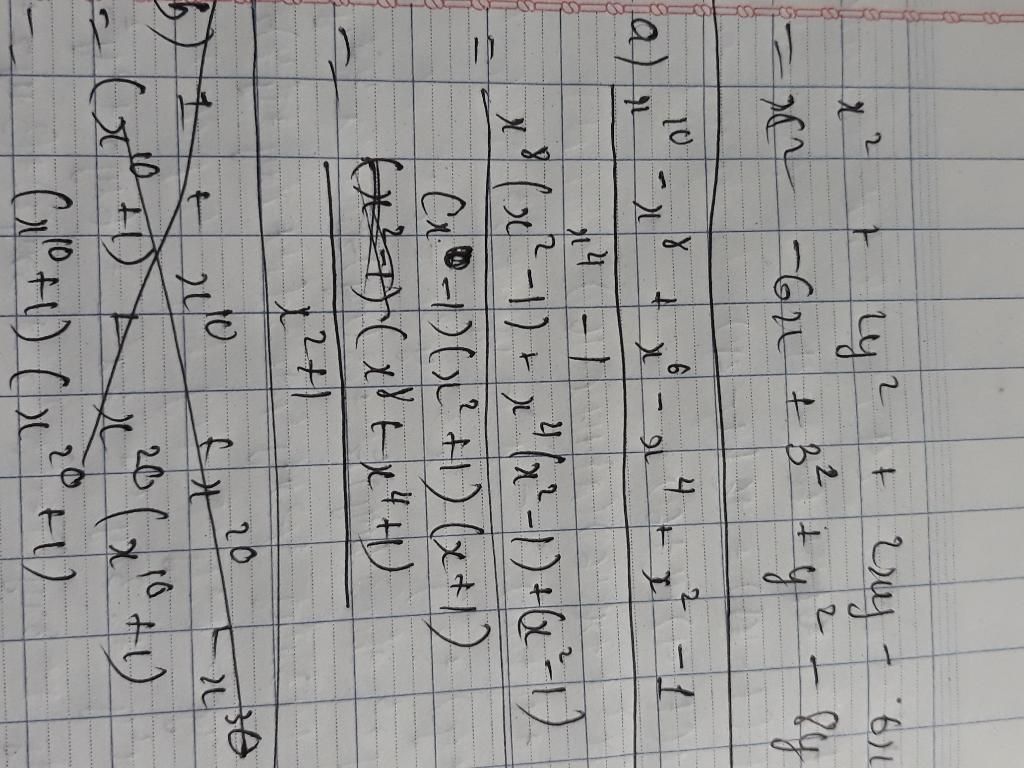 x² + 2y² + 2xy - 6x
= x² - 6x + 3² + y² - 8y
a) x¹⁰ - x⁸ + x⁶ - x⁴ + x² - 1
x⁴ - 1
= x⁸(x² - 1) + x⁴(x² - 1) + (x² - 1)
(x - 1)(x² + 1)(x + 1)
= (x⁸ + x⁴ + 1)
x² + 1
b) 1 + x¹⁰ + x²⁰ + x³⁰
= (x¹⁰ + 1) + x²⁰(x¹⁰ + 1)
= (x¹⁰ + 1)(x²⁰ + 1)